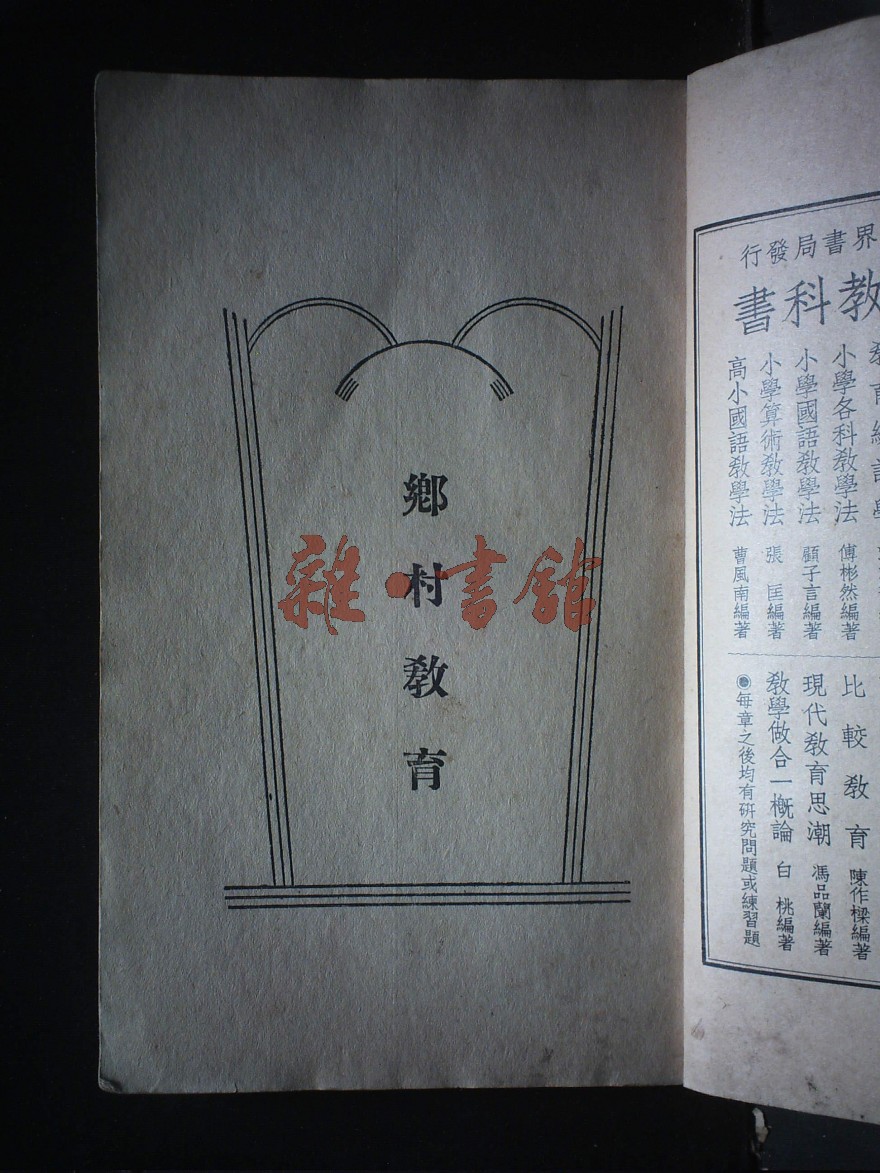 鄉村教育
雜·書館
界書局發行
教科書
小學各科教學法 傅彬然編著
小學國語教學法 顧子言編著
小學算術教學法 張匡編著
高小國語教學法 曹風南編著
比較教育 陳作樑編著
現代教育思潮 馮品蘭編著
教學做合一概論 白桃編著
◉每章之後均有研究問題或練習題